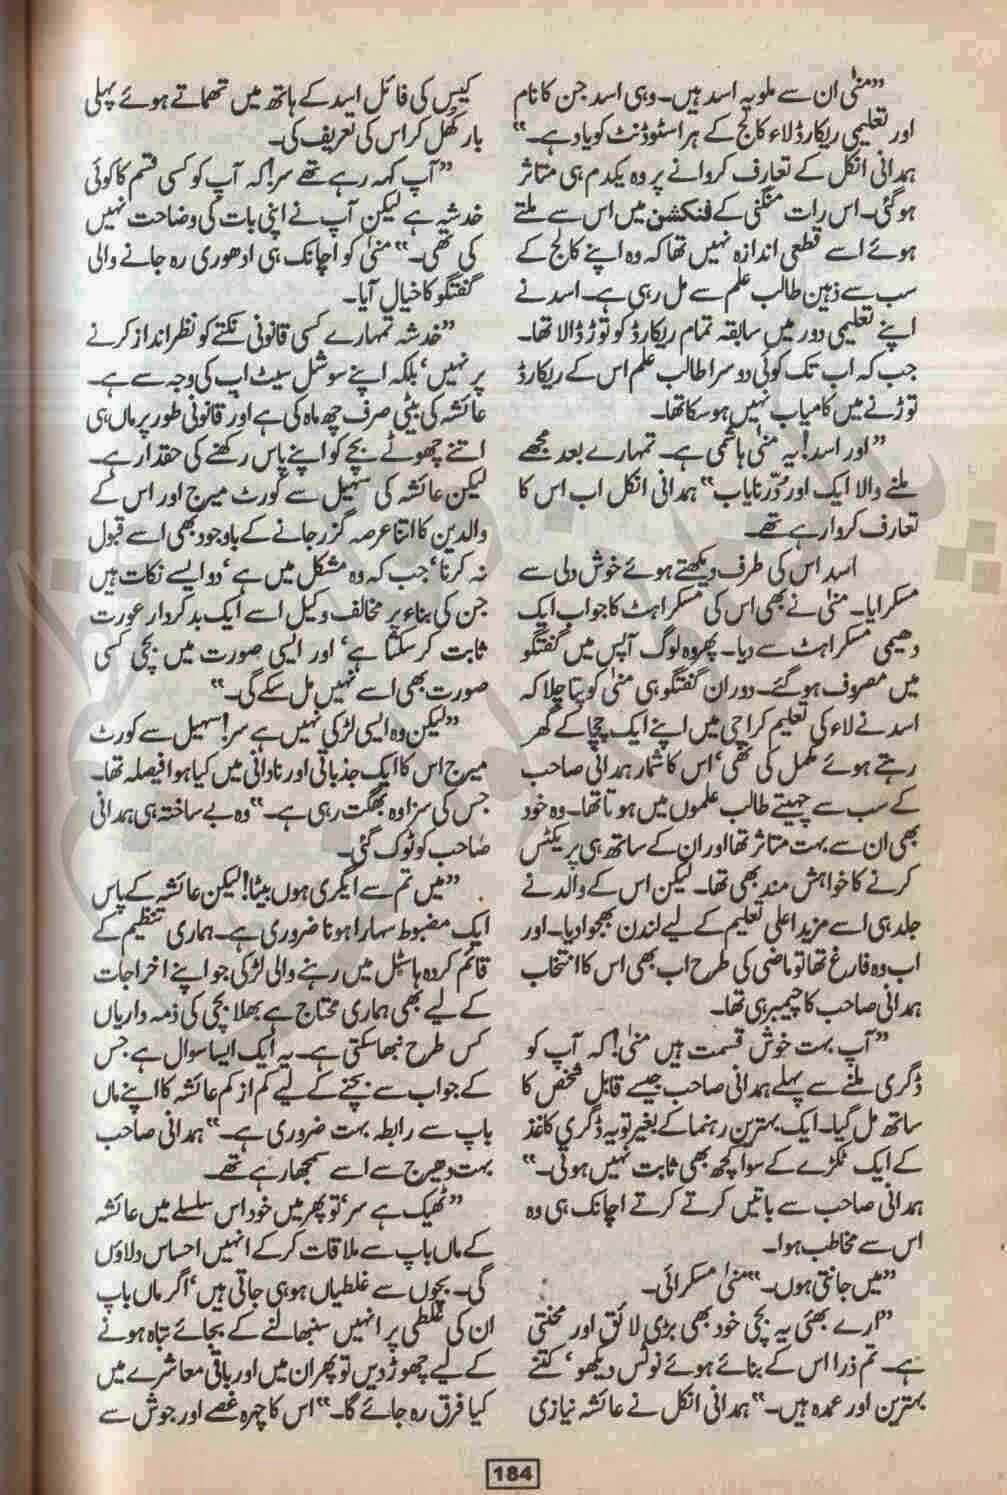 ”منیٰ ان سے ملو یہ اسد ہیں۔ وہی اسد جن کا نام
اور تعلیمی ریکارڈ لاء کالج کے ہر اسٹوڈنٹ کو یاد ہے۔“
ہمدانی انکل کے تعارف کروانے پر وہ یکدم ہی متاثر
ہو گئی۔ اس رات منگنی کے فنکشن میں اس سے ملتے
ہوئے اسے قطعی اندازہ نہیں تھا کہ وہ اپنے کالج کے
سب سے ذہین طالب علم سے مل رہی ہے۔ اسد نے
اپنے تعلیمی دور میں سابقہ تمام ریکارڈ کو توڑ ڈالا تھا۔
جب کہ اب تک کوئی دوسرا طالب علم اس کے ریکارڈ
توڑنے میں کامیاب نہیں ہو سکا تھا۔
”اور اسد! یہ منیٰ ہاشمی ہے۔ تمہارے بعد مجھے
ملنے والا ایک اور دُرّنایاب“ ہمدانی انکل اب اس کا
تعارف کروا رہے تھے۔
اسد اس کی طرف دیکھتے ہوئے خوش دلی سے
مسکرایا۔ منیٰ نے بھی اس کی مسکراہٹ کا جواب ایک
دھیمی مسکراہٹ سے دیا۔ پھر وہ لوگ آپس میں گفتگو
میں مصروف ہو گئے۔ دوران گفتگو ہی منیٰ کو پتا چلا کہ
اسد نے لاء کی تعلیم کراچی میں اپنے ایک چچا کے گھر
رہتے ہوئے مکمل کی تھی‘ اس کا شمار ہمدانی صاحب
کے سب سے چہیتے طالب علموں میں ہوتا تھا۔ وہ خود
بھی ان سے بہت متاثر تھا اور ان کے ساتھ ہی پریکٹس
کرنے کا خواہش مند بھی تھا۔ لیکن اس کے والد نے
جلد ہی اسے مزید اعلیٰ تعلیم کے لیے لندن بھجوا دیا۔ اور
اب وہ فارغ تھا تو ماضی کی طرح اب بھی اس کا انتخاب
ہمدانی صاحب کا چیمبر ہی تھا۔
”آپ بہت خوش قسمت ہیں منیٰ! کہ آپ کو
ڈگری ملنے سے پہلے ہمدانی صاحب جیسے قابل شخص کا
ساتھ مل گیا۔ ایک بہترین رہنما کے بغیر تو یہ ڈگری کاغذ
کے ایک ٹکڑے کے سوا کچھ بھی ثابت نہیں ہوتی۔“
ہمدانی صاحب سے باتیں کرتے کرتے اچانک ہی وہ
اس سے مخاطب ہوا۔
”میں جانتی ہوں۔“ منیٰ مسکرائی۔
”ارے بھئی یہ بچی خود بھی بڑی لائق اور محنتی
ہے۔ تم ذرا اس کے بنائے ہوئے نوٹس دیکھو‘ کتنے
بہترین اور عمدہ ہیں۔“ ہمدانی انکل نے عائشہ نیازی
کیس کی فائل اسد کے ہاتھ میں تھماتے ہوئے پہلی
بار کھُل کر اس کی تعریف کی۔
”آپ کہہ رہے تھے سر! کہ آپ کو کسی قسم کا کوئی
خدشہ ہے لیکن آپ نے اپنی بات کی وضاحت نہیں
کی تھی۔“ منیٰ کو اچانک ہی ادھوری رہ جانے والی
گفتگو کا خیال آیا۔
”خدشہ تمہارے کسی قانونی نکتے کو نظر انداز کرنے
پر نہیں‘ بلکہ اپنے سوشل سیٹ اپ کی وجہ سے ہے۔
عائشہ کی بیٹی صرف چھ ماہ کی ہے اور قانونی طور پر ماں ہی
اتنے چھوٹے بچے کو اپنے پاس رکھنے کی حقدار ہے۔
لیکن عائشہ کی سہیل سے کورٹ میرج اور اس کے
والدین کا اتنا عرصہ گزر جانے کے باوجود بھی اسے قبول
نہ کرنا‘ جب کہ وہ مشکل میں ہے‘ دو ایسے نکات ہیں
جن کی بناء پر مخالف وکیل اسے ایک بدکردار عورت
ثابت کر سکتا ہے‘ اور ایسی صورت میں بچی کسی
صورت بھی اسے نہیں مل سکے گی۔“
”لیکن وہ ایسی لڑکی نہیں ہے سر! سہیل سے کورٹ
میرج اس کا ایک جذباتی اور نادانی میں کیا ہوا فیصلہ تھا۔
جس کی سزا وہ بھگت رہی ہے۔“ وہ بے ساختہ ہی ہمدانی
صاحب کو ٹوک گئی۔
”میں تم سے ایگری ہوں بیٹا! لیکن عائشہ کے پاس
ایک مضبوط سہارا ہونا ضروری ہے۔ ہماری تنظیم کے
قائم کردہ ہاسٹل میں رہنے والی لڑکی جو اپنے اخراجات
کے لیے بھی ہماری محتاج ہے بھلا بچی کی ذمہ داریاں
کس طرح نبھا سکتی ہے۔ یہ ایک ایسا سوال ہے جس
کے جواب سے بچنے کے لیے کم از کم عائشہ کا اپنے ماں
باپ سے رابطہ بہت ضروری ہے۔“ ہمدانی صاحب
بہت دھیرج سے اسے سمجھا رہے تھے۔
”ٹھیک ہے سر‘ تو پھر میں خود اس سلسلے میں عائشہ
کے ماں باپ سے ملاقات کر کے انہیں احساس دلاؤں
گی۔ بچوں سے غلطیاں ہو ہی جاتی ہیں‘ اگر ماں باپ
ان کی غلطی پر انہیں سنبھالنے کے بجائے تباہ ہونے
کے لیے چھوڑ دیں تو پھر ان میں اور باقی معاشرے میں
کیا فرق رہ جائے گا۔“ اس کا چہرہ غصے اور جوش سے
184